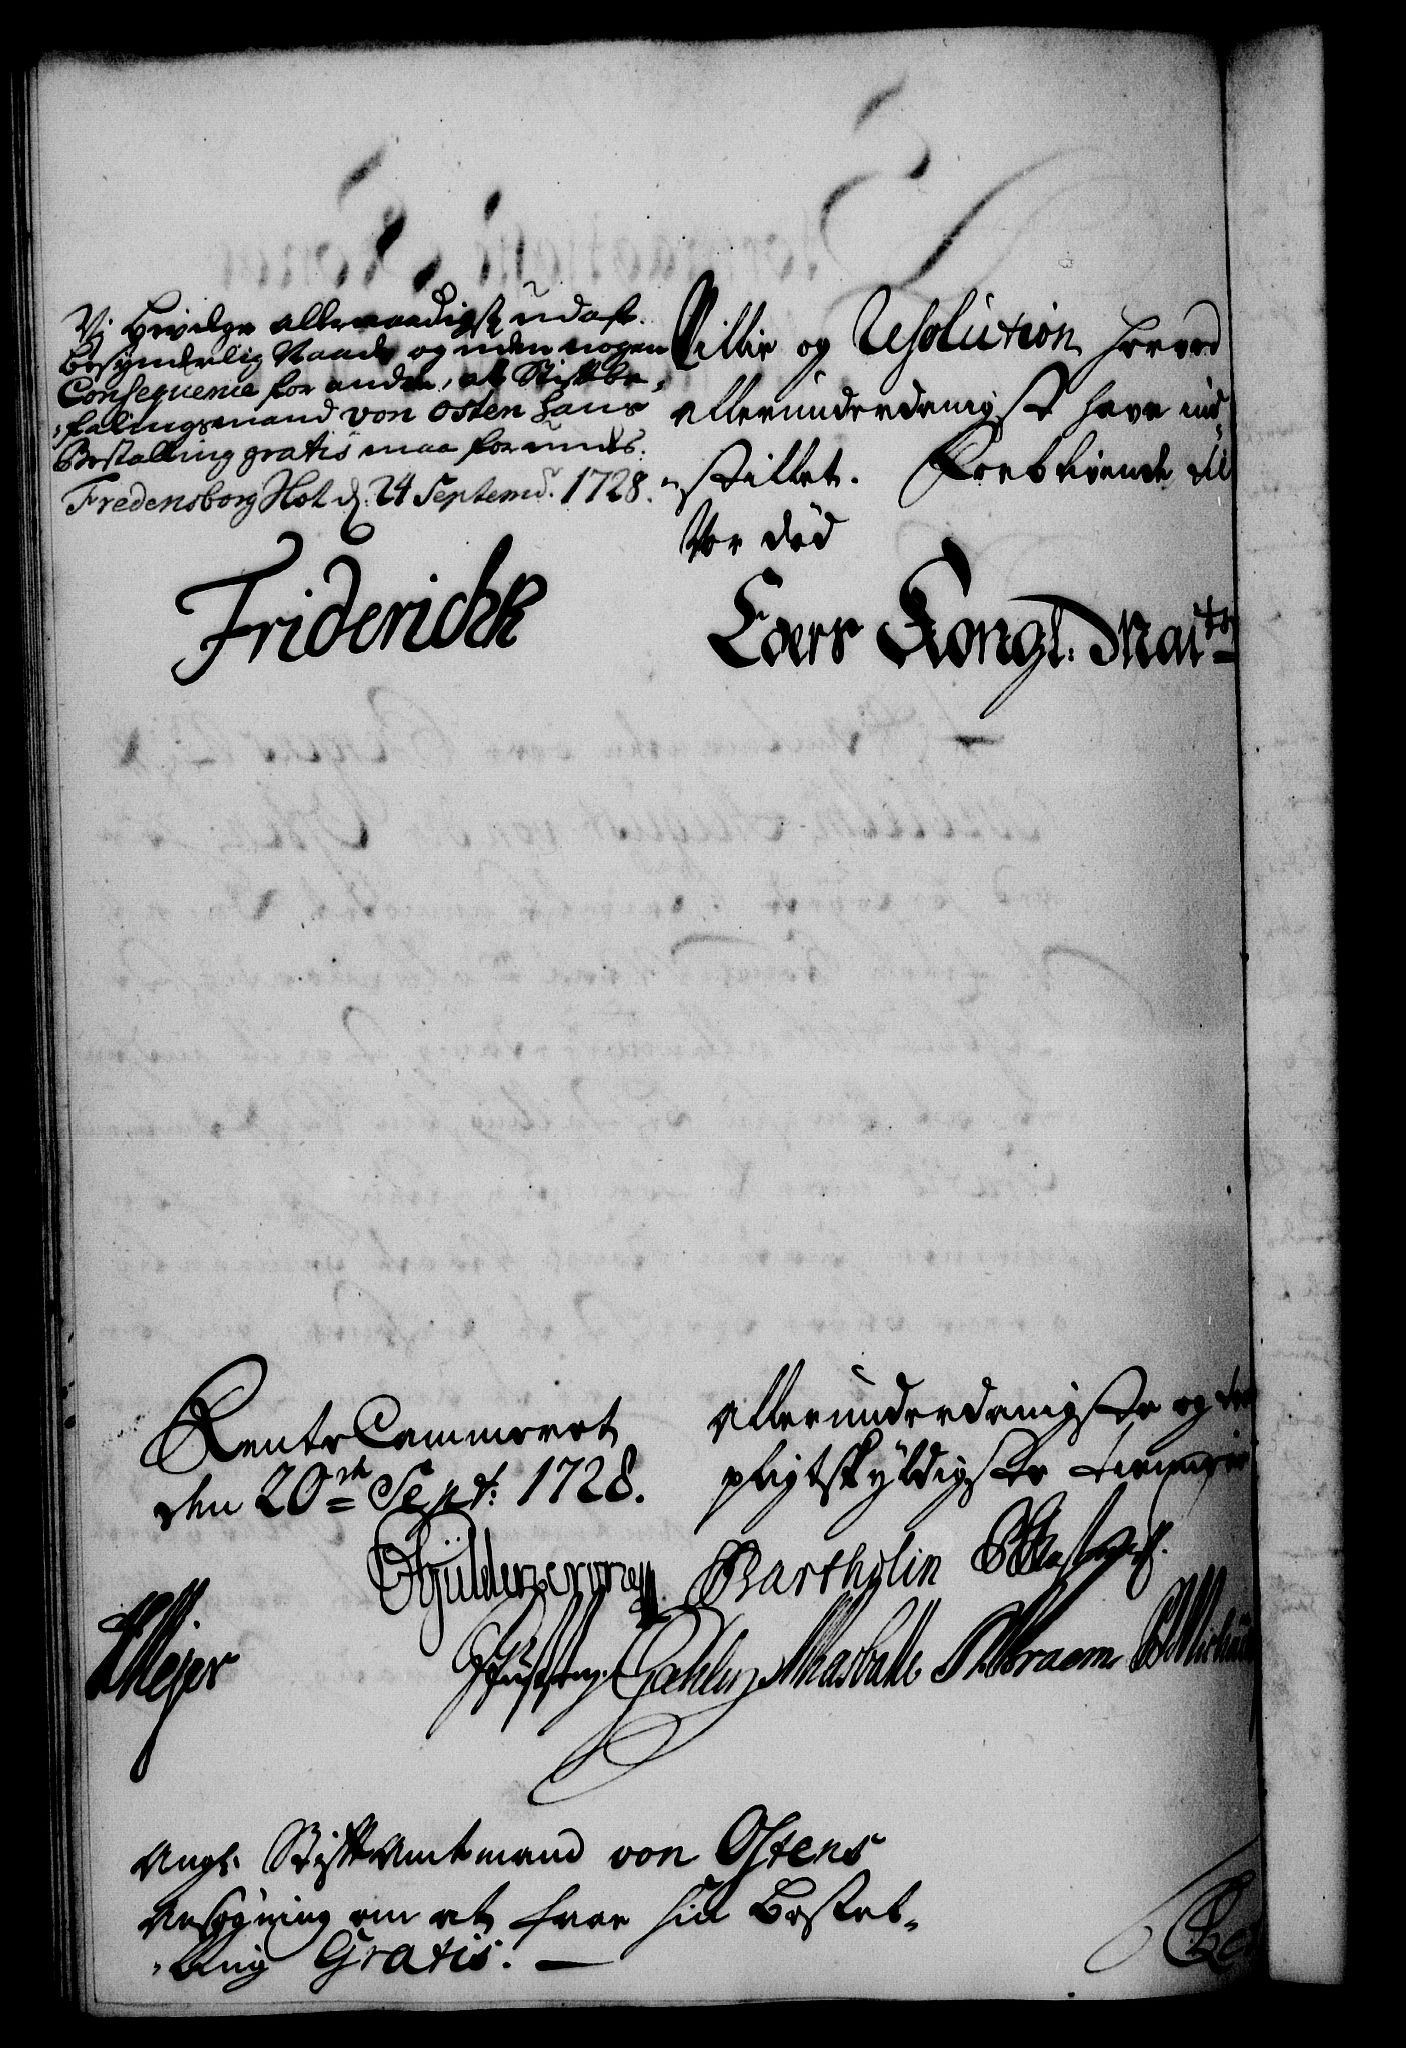 Vi bevilge allernaadigst udaf
besynderlig Naade og uden nogen
Consequence for andre, at Stiftbe¬
¬falingsmand von Osten hans
Bestalling gratis maa forundes.
Fredensborg Slot d. 24 Septemb. 1728.
Friderich R
Villie og Resolution herved
allerunderdanigst have ind¬
¬stillet. Forblivende til
Vor død
Eders Kongl. Mai.ts
Rente Cammeret
den 20de Sept. 1728.
allerunderdanigste og
pligtskyldigste tienere
Güldencrone
Bartholin
Meyer
Abraham
Ang. Stiftamtmand von Ostens
Ansøgning om at faae sin Bestal¬
¬ling Gratis.